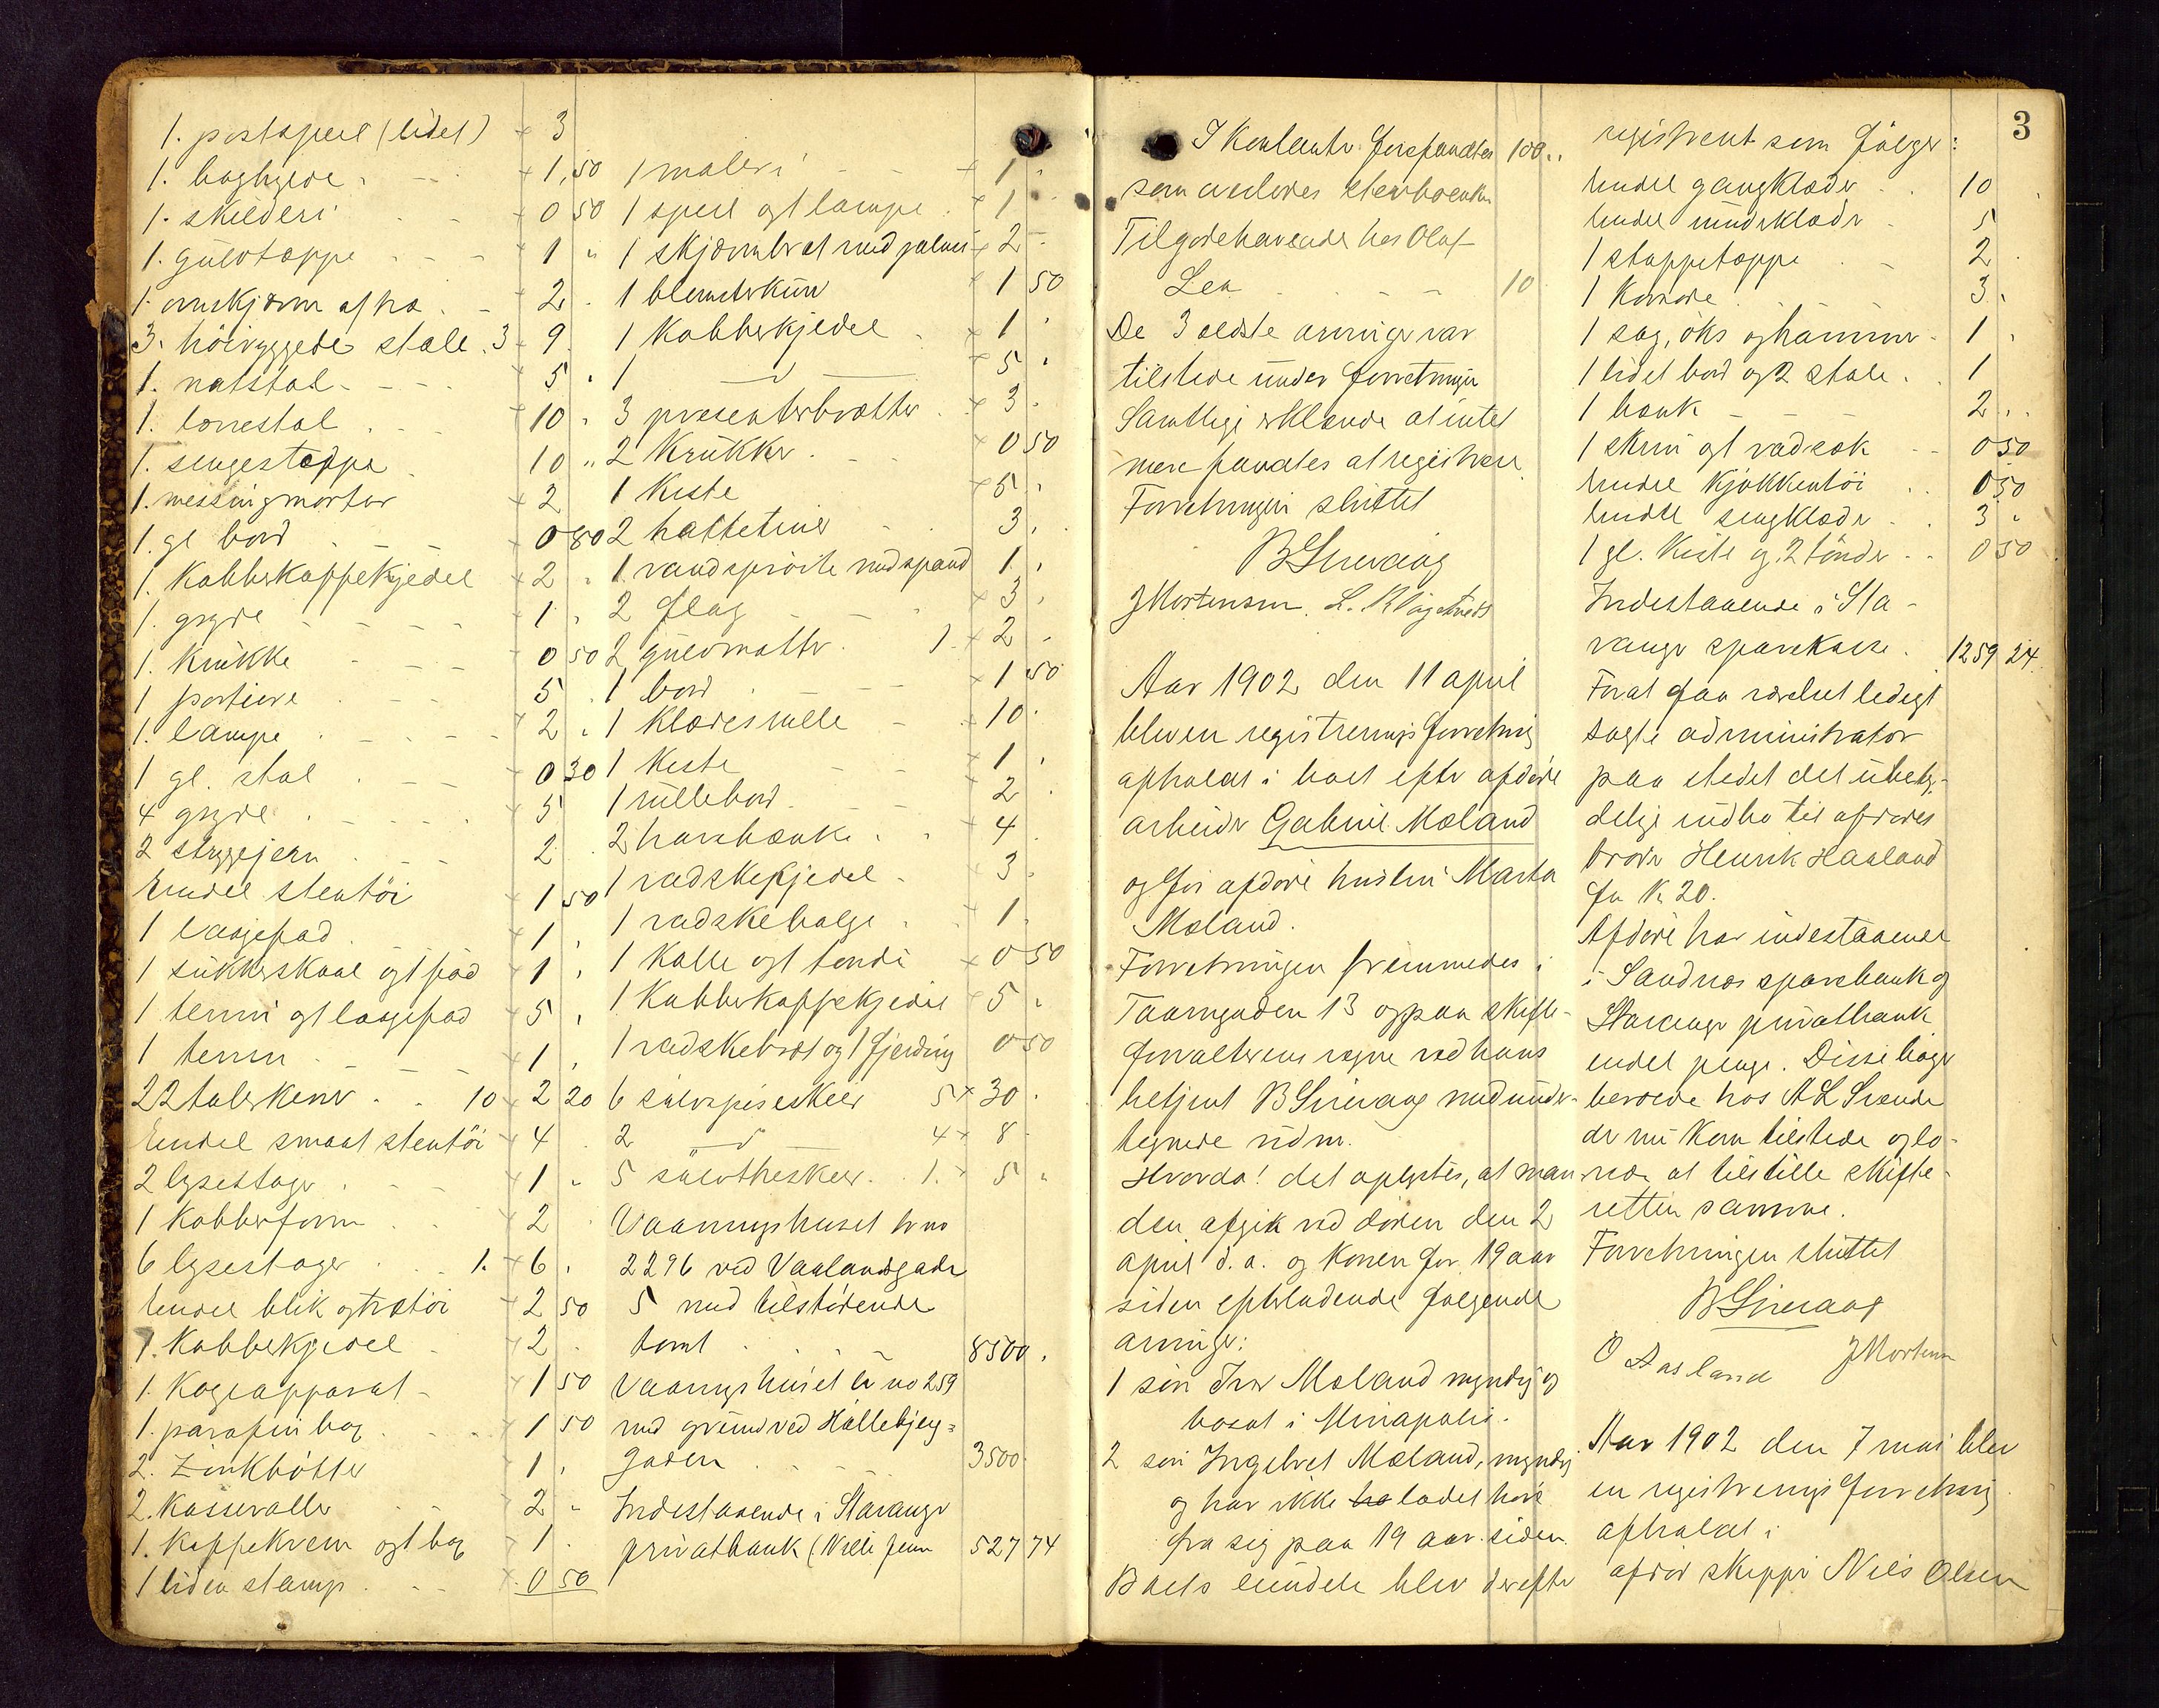 1. postaspeil (lidet) 3
1. boghylde 1,50
1. skilderi 0 50
1. gulvtæppe 1 "
1. ovnskjærm af træ 2
3. höiryggede stole. 3 9
1. natstol 5
1. lænestol 10
1. sengestæppe 10 "
1. messingmorter 2
1. gl bord 0 80
1. Kobberkaffekjedel 2
1. gryde 1
1. Krukke 0 50
1 portiere 5
1. lampe 2
1 gl. stol 0 30
4 gryde 5
2 strygejern 2
Endel stentöi 1 50
1 laagefad 1
1 sukkerskaal og 1 fad 1
1 terrin og 1 laagefad 5
1 terrin 1
22 talerkener 10 2 20
Endel smaat stentöi 4
2 lysestager 1
1 Kobberform 2
6 lysestager 1. 6
Endel blik og trætöi 2 50
1. Kobberkjedel 2
1. Kogeapparat 1 50
1. parafin 1 50
2. Zinkbötter 1
2. Kasseroller 2
1. Kaffekvern og 1 1
1 liden stamp 0 50
1 maleri 1
1 speil og 1 lampe 1
1 skjærmbræt med palmer 2
1 blomsterkurv 1 50
1 Kobberkjedel 1
1 d 5
3 presenterbrætter 3
2 Krukker 0 50
1 Kiste 5
2 hatteteiner 3
1 vandspröite med spand 1
2 flag 3
2 gulvmatter 1 2
1 bord 1 50
1 Klæderulle 10
1 Kiste 1
1 rullebord 2
2 havebænke 4
1 vadskekjedel 3
1 vadskebalge 1
1 Kolle og 1 tönde 0 50
1 Kobberkaffekjedel 5
1 vadskebræt og 1 fjerding 0 50
6 sölvspiseskeer 5 30
2 d 4 8
5 sölvtheskeer 1. 5
Vaaningshuset br no
2296 ved Vaalandsgade
5 med tilstödende
tomt 8500
Vaaningshuset br no 259
med grund ved Hallebjerg=
gaden 3500
Indestaaende i Stavanger
privatbank ( 527 74
3
I Kontanter forefandtes 100
som
Tilgodehavende hos Olaf
Lea 10
De 3 ældste arvinger var
tilstede under forretningen
Samtlige erklærede at intet
mere fandtes at registrere
Forretningen sluttet
B Sirevaag
J Mortensen. L.
Aar 1902 den 11 april
blev en registreringsforretning
afholdt i boet efter afdöde
arbeider Gabriel Moland
og för afdöde hustru Marta
Moland.
Forretningen fremmedes i
Taarngaden 13 og paa skifte-
forvalterens vegne ved hans
betjent B Sirevaag med under-
tegnede vidner.
Hvorda! det oplystes, at man-
den afgik ved döden den 2
april d. a. og Konen for 19 aar
siden efterladende følgende
arvinger:
1 sön Iver Moland myndig og
bosat i Minapolis.
2 sön Ingebret Moland, myndig
og har ikke ladet höre
fra sig paa 19 aar siden.
Boets eiendele blev derefter
registreret som fölger:
Endel gangklæder 10
Endel underklæder 5
1 stoppetæppe 2
1 Komode 3
1 sag, öks og hammer 1
1 lidet bord og 2 stole 1
1 bænk 2
1 skrin og 1 vadsæk 0 50
Endel Kjökkentöi 0 50
Endel sengklæder 3
1 gl. Kiste og 2 tönder 0 50
Indestaaende i Sta-
vanger sparekasse 1259 24
For at faa værelset ledigt
solgte administrator
paa stedet det ubety-
delige indbo til afdödes
broder Henrik Haaland
for K 20.
Afdöde har indestaaende
i Sandnes sparebank og
Stavanger privatbank
endel penge. Disse böger
beroede hos A L Svende
der nu Kom tilstede og lo-
vede at tilstille skifte-
retten samme.
Forretningen sluttet
B Sirevaag
O Aasland J Mortensen
Aar 1902 den 7 mai blev
en registreringsforretning
afholdt i
afdöd skipper Niels Olsen